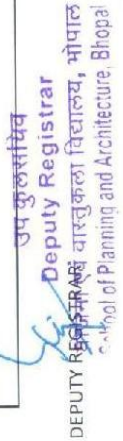 उप कुलसचिव
Deputy Registrar
DEPUTY REGISTRAR
योजना एवं वास्तुकला विद्यालय, भोपाल
School of Planning and Architecture, Bhopal